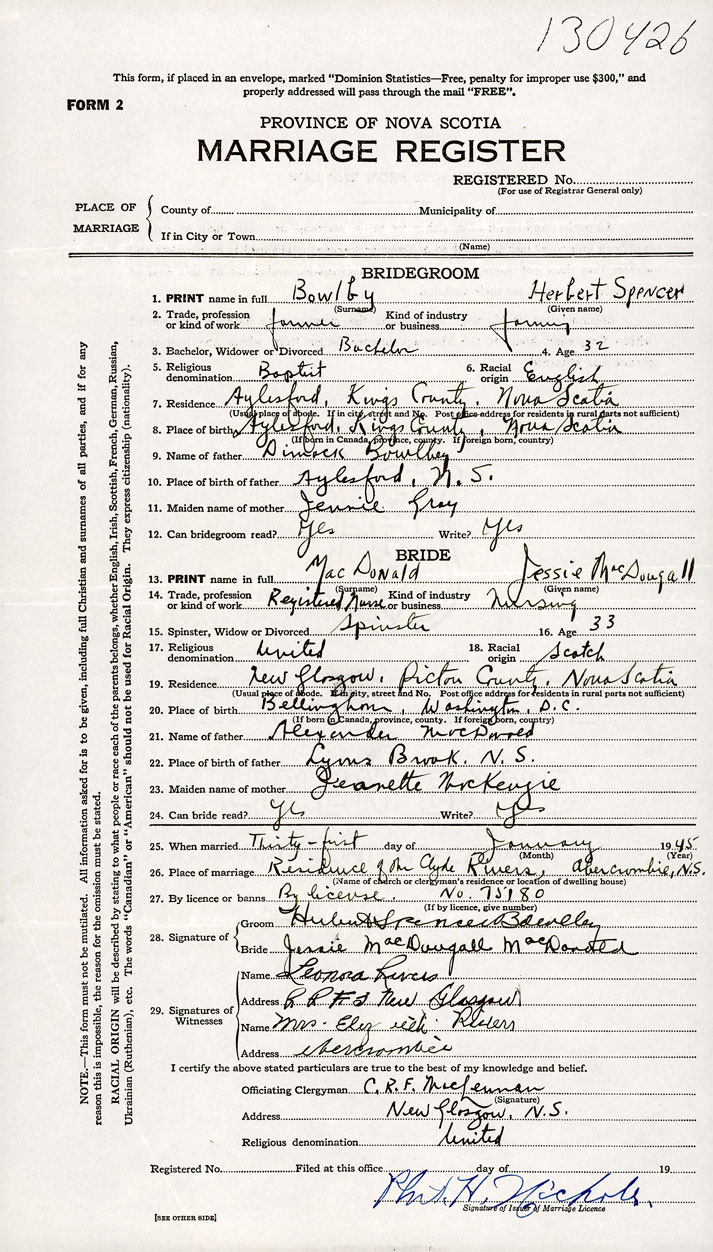 130426
This form, if placed in an envelope, marked "Dominion Statistics—Free, penalty for improper use $300," and
properly addressed will pass through the mail "FREE".
FORM 2
PROVINCE OF NOVA SCOTIA
MARRIAGE REGISTER
REGISTERED No.
(For use of Registrar General only)
PLACE OF MARRIAGE
County of Municipality of
If in City or Town
(Name)
BRIDEGROOM
1. PRINT name in full Bowlby Herbert Spencer
(Surname) (Given name)
2. Trade, profession or kind of work farmer Kind of industry or business farming
3. Bachelor, Widower or Divorced Bachelor 4. Age 32
5. Religious denomination Baptist 6. Racial origin English
7. Residence Aylesford, Kings County, Nova Scotia
(Usual place of abode. If in city, street and No. Post office address for residents in rural parts not sufficient)
8. Place of birth Aylesford, Kings County, Nova Scotia
(If born in Canada, province, county. If foreign born, country)
9. Name of father Dimock Bowlby
10. Place of birth of father Aylesford, N.S.
11. Maiden name of mother Jennie Gray
12. Can bridegroom read? Yes Write? Yes
BRIDE
13. PRINT name in full MacDonald Jessie MacDougall
(Surname) (Given name)
14. Trade, profession or kind of work Registered Nurse Kind of industry or business Nursing
15. Spinster, Widow or Divorced Spinster 16. Age 33
17. Religious denomination United 18. Racial origin Scotch
19. Residence New Glasgow, Pictou County, Nova Scotia
(Usual place of abode. If in city, street and No. Post office address for residents in rural parts not sufficient)
20. Place of birth Bellingham, Washington, D.C.
(If born in Canada, province, county. If foreign born, country)
21. Name of father Alexander MacDonald
22. Place of birth of father Lyons Brook, N.S.
23. Maiden name of mother Jeanette MacKenzie
24. Can bride read? Yes Write? Yes
25. When married Thirty-first day of January 1945
(Month) (Year)
26. Place of marriage Residence of Mr Clyde Rivers, Abercrombie, N.S.
(Name of church or clergyman's residence or location of dwelling house)
27. By licence or banns By license. No. 75180
(If by licence, give number)
28. Signature of
Groom Herbert Spencer Bowlby
Bride Jessie MacDougall MacDonald
29. Signatures of Witnesses
Name Leonora Rivers
Address New Glasgow
Name Mrs. Rivers
Address Abercrombie
I certify the above stated particulars are true to the best of my knowledge and belief.
Officiating Clergyman C.R.F. MacLennan
(Signature)
Address New Glasgow, N.S.
Religious denomination United
Registered No. Filed at this office day of 19
Phil. H. Nichols.
Signature of Issuer of Marriage Licence
[SEE OTHER SIDE]
NOTE.—This form must not be mutilated. All information asked for is to be given, including full Christian and surnames of all parties, and if for any
reason this is impossible, the reason for the omission must be stated.
RACIAL ORIGIN will be described by stating to what people or race each of the parents belongs, whether English, Irish, Scottish, French, German, Russian,
Ukrainian (Ruthenian), etc. The words "Canadian" or "American" should not be used for Racial Origin. They express citizenship (nationality).